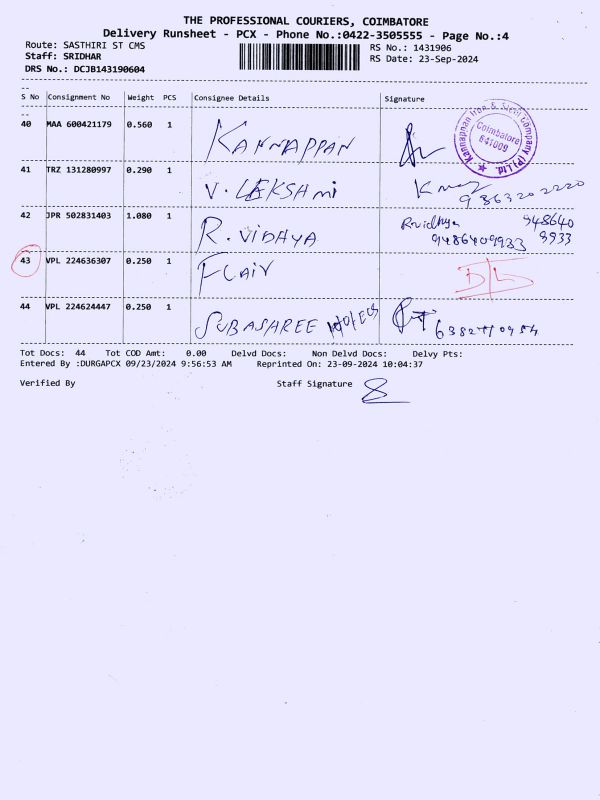 THE PROFESSIONAL COURIERS, COIMBATORE
Delivery Runsheet - PCX - Phone No.:0422-3505555 - Page No.:4
Route: SASTHIRI ST CMS RS No.: 1431906
Staff: SRIDHAR RS Date: 23-Sep-2024
DRS No.: DCJB143190604
S No Consignment No Weight PCS Consignee Details Signature
40 MAA 600421179 0.560 1 KANNAPPAN
Kannappan Iron & Steel Company (P) Ltd.
Coimbatore
641009
41 TRZ 131280997 0.290 1 V. LEKSHMI
42 JPR 502831403 1.080 1 R. VIDHYA Rvidhya 948640
9486409933 9933
43 VPL 224636307 0.250 1 FLAIR D/L
44 VPL 224624447 0.250 1 SUBASHREE
Tot Docs: 44 Tot COD Amt: 0.00 Delvd Docs: Non Delvd Docs: Delvy Pts:
Entered By :DURGAPCX 09/23/2024 9:56:53 AM Reprinted On: 23-09-2024 10:04:37
Verified By Staff Signature